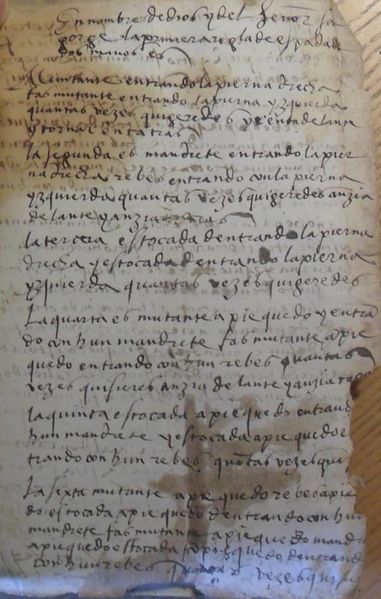 En nombre de dios y del señor sa
Jorge la primera regla de espada de
dos manos es
mutante entrando la pierna drecha
fas mutante entrando la pierna yzquierda
quantas vezes quigeredes y delante
y tornar atras
la segunda es mandrete entrando la pier
na drecha rebes entrando con la pierna
yzquierda quantas vezes quigeredes anzia
delante y anzia atras
la tercera estocada dentrando la pierna
drecha y estocada dentrando la pierna
yzquierda quantas vezes quigeredes
La quarta es mutante a pie quedo y entra
do con hun mandrete fas mutante a pie
quedo entrando con hun rebes quantas
vezes quisieres anzia delante y anzia
la quinta estocada a pie quedo entrando
hun mandrete y estocada a pie quedo e
trando con hun rebes quantas vezes qui
La sexta mutante a pie quedo rebes a pie
do estocada a pie quedo dentrando con hun
mandrete fas mutante a pie quedo mandre
a pie quedo estocada a pie quedo dentrand
con hun rebes vezes qui